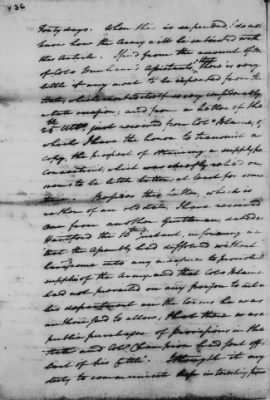 436
forty days. When this is expended, I don't
know how the Army will be subsisted with
this article. I find from the amount of One
of Colo Assistants, there is very
little if any meat to be expected from that
State, which we relied on
and from a letter of the
25 Ulto. just received from Colo. Blaine, of
which I have the honor to transmit a
Copy, the prospect of obtaining a supply from
Connecticut, which was chiefly relied on
seems to be little better, at least for some
time. Besides this Letter, which is
rather of an old date, I have received
one from another Gentleman dated at
Hartford the instant, informing me
that the Assembly had dissolved without
going into any measures to promote
supplies of the Army and that Colo. Blaine
had not prevailed on any person to act in
his department on the terms he was
authorised to allow; that there was no
public purchaser of provisions in the
State and Colo. Champion had sent off
last of his Cattle. I thought it my
duty to communicate these interesting